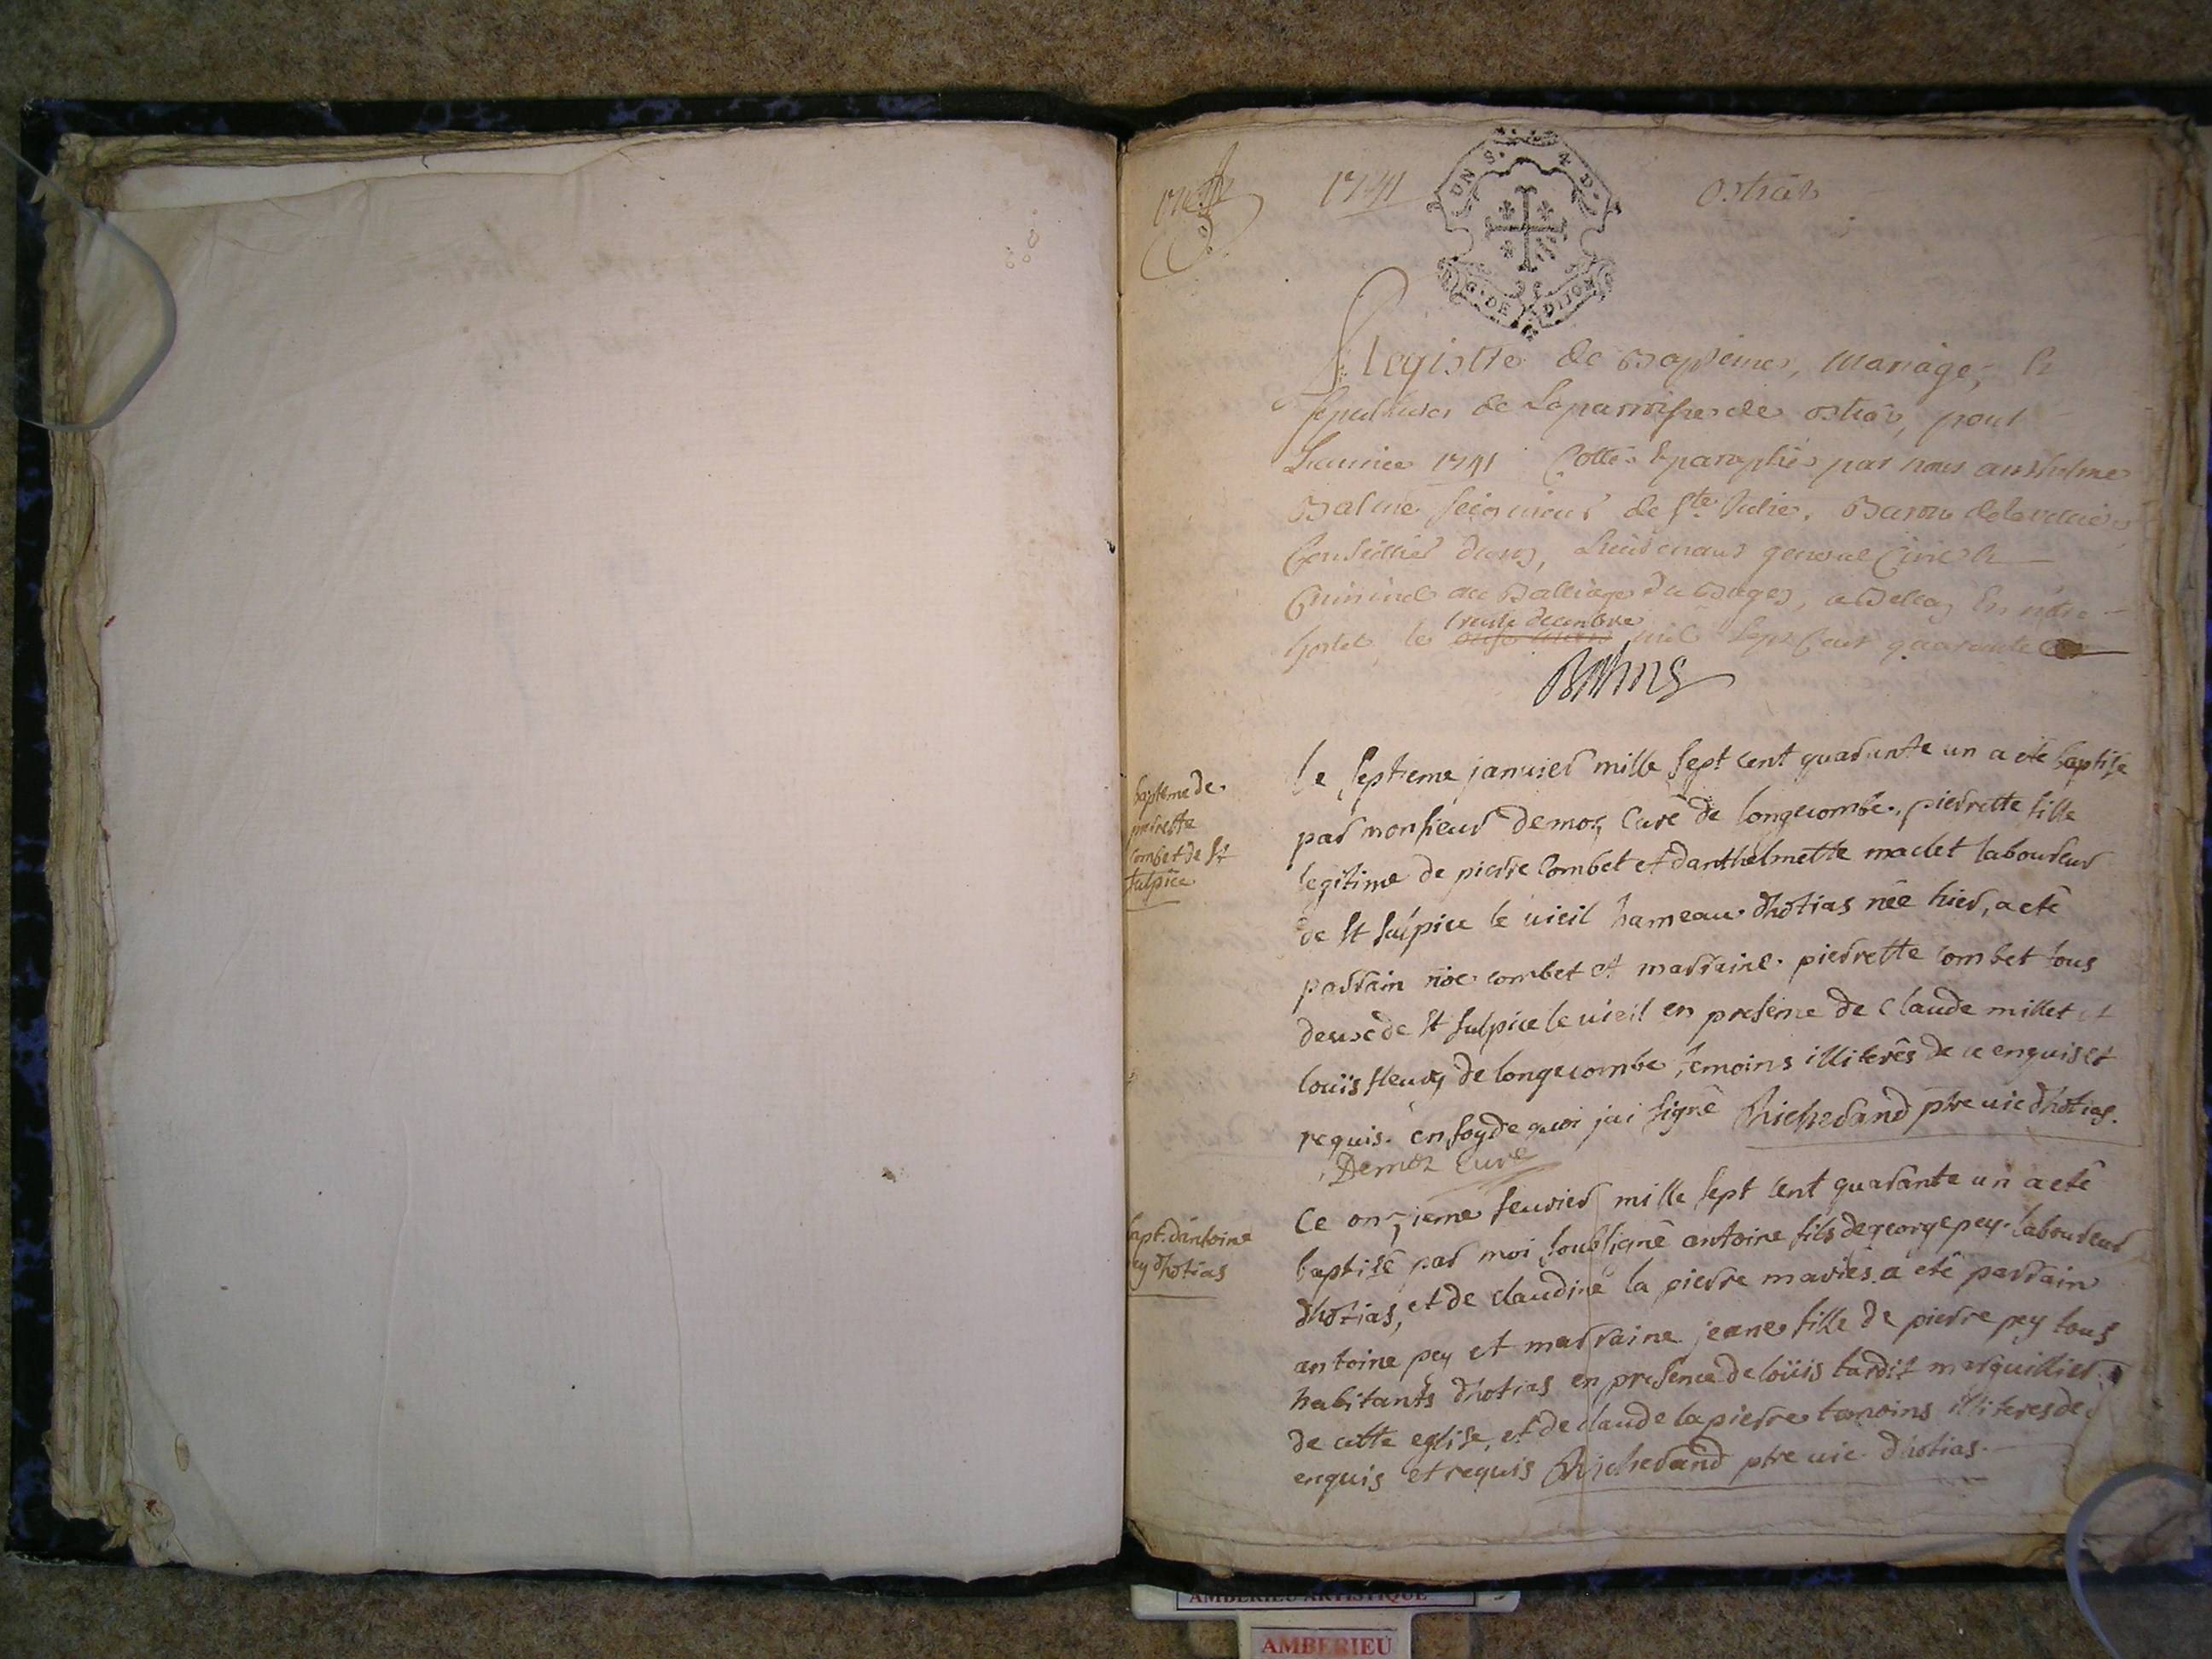 1741
Ostiaz
UN S. 4 D.
G. DE DIJON
Registre de Baptemes, Mariage, &
Sepultures de La parroisse de ostiaz, pour
Lannée 1741 Cotté & paraphé par nous anthelme
Balme seigneur de Ste Julie, Baron
Conseillier du roy, Lieutenant general Civil &
Criminel au Balliage du Bugey, a Belley En nôtre
hostel, le treize decembre mil Sept Cent quarante
Balme
bapteme de
pierrette
combet de st
sulpice
Le septieme janvier mille sept cent quarante un a eté baptise
par monsieur demoz Curé de longecombe. pierrette fille
legitime de pierre Combet et danthelmette maclet laboureur
de st sulpice le vieil hameau dhotias née hier, a eté
parrain noe combet et marraine. pierrette combet tous
deux de st sulpice le vieil en presence de Claude millet et
louïs fleury de longecombe, temoins illiterés de ce enquis et
requis. en foy de quoi jai signé Richerand ptre vic dhotias.
Demoz Curé
bapt. dantoine
pey dhotias
Ce onzieme fevrier mille sept cent quarante un a eté
baptisé par moi soubsigné antoine fils de george pey laboureur
dhotias, et de claudine la pierre mariés a eté parrain
antoine pey et marraine jeane fille de pierre pey tous
habitants dhotias en presence de loüis tardit marguillier
de cette eglise, et de claude la pierre temoins illiteres de
enquis et requis Richerand ptre vic dhotias.
AMBERIEU ARTISTIQUE
AMBERIEU